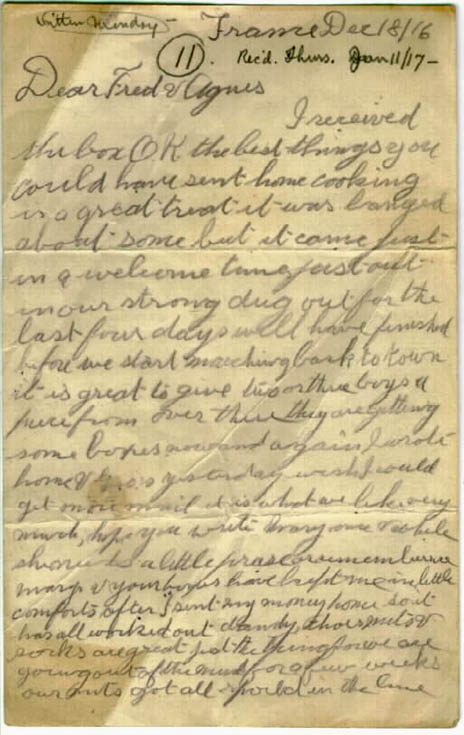 Written Monday -
France Dec 18/16
11. Rec'd. Thurs. Jan 11/17 -
Dear Fred & Agnes
I received
the box OK the best things you
could have sent home cooking
is a great treat it was banged
about some but it came just
in a welcome time just out
in our strong dug out for the
last four days will have finished
before we start marching back to town
it is great to give two or three boys a
piece from over there they are getting
some boxes now and again I wrote
home & yesterday wish I could
get more mail it is what we like very
much, hope you write every once & while
a little
& your boxes have kept me in little
comforts after I sent my money home so it
has all worked out dandy, those mits &
socks are great just the thing for we are
going out of the mud for a few weeks
our mits got all spoild in the line